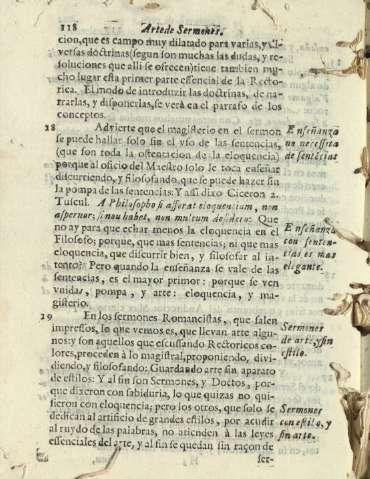 118 Arte de Sermones.
cion, que es campo muy dilatado para varias, y di-
versas doctrinas (segun son muchas las dudas, y re-
soluciones que alli se ofrecen) tiene tambien mu-
cho lugar esta primera parte essencial de la Recto-
rica. El modo de introducir las doctrinas, de na-
rrarlas, y disponerlas, se verà en el parrafo de los
conceptos.
28 Advierte que el magisterio en el sermon
se puede hallar solo sin el vso de las sentencias,
(que son toda la ostentacion de la eloquencia)
porque al oficio del Maestro solo le toca enseñar
discurriendo, y filosofando, que se puede hazer sin
la pompa de las sentencias: Y assi dixo Ciceron 2.
Tuscul. A Philosopho si afferat eloquentiam, non
aspernor; si non habet, non multum desidero: Que
no ay para que echar menos la eloquencia en el
Filosofo; porque, que mas sentencias; ni que mas
eloquencia, que discurrir bien, y filosofar al in-
tento? Pero quando la enseñanza se vale de las
sentencias, es el mayor primor: porque se ven
vnidas, pompa, y arte: eloquencia, y ma-
gisterio.
Enseñanza
no necesita
de sentécias
Enseñanza
con senten-
cias es mas
elegante.
29 En los sermones Romancistas, que salen
impressos, lo que vemos es, que llevan arte algu-
nos; y son aquellos que escusando Rectoricos co-
lores, proceden à lo magistral, proponiendo, divi-
diendo, y filosofando: Guardando arte sin aparato
de estilos: Y al fin son Sermones, y Doctos, por-
que dixeron con sabiduria, lo que quizas no qui-
sieron con eloquencia; pero los otros, que solo se
dedican al artificio de grandes estilos, por acudir
al ruydo de las palabras, no atienden à las leyes
essenciales del arte, y al fin se quedan sin raçon de
Sermones
de arte, y sin
estilo.
Sermones
con estilo, y
sin arte.
ser-